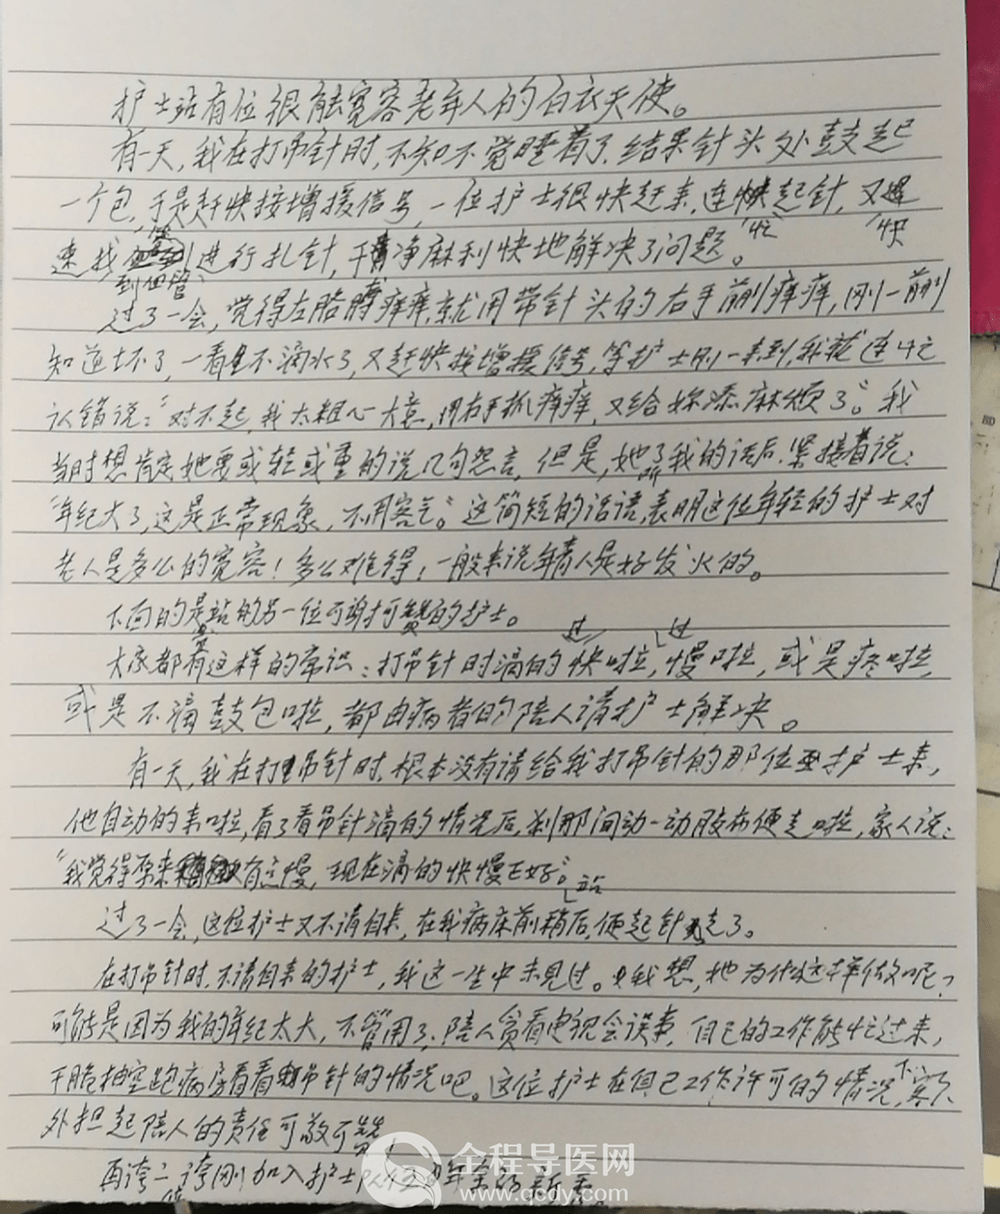 护士站有位很能宽容老年人的白衣天使。
有一天,我在打吊针时,不知不觉睡着了,结果针头处鼓起
一个包,于是赶快按增援信号,一位护士很快赶来,连忙起针,又快
速找到血管进行扎针,干净麻利快地解决了问题。
过了一会,觉得左胳膊痒痒,就用带针头的右手挠痒痒,刚一挠
知道坏了,一看是不滴水了,又赶快按增援信号,等护士刚一来到,我就连忙
认错说:“对不起,我太粗心大意,用右手抓痒痒,又给你添麻烦了。”我
当时想肯定她要或轻或重的说几句怨言,但是,她听了我的话后,紧接着说:
“年纪大了,这是正常现象,不用客气。”这简短的话语,表明这位年轻的护士对
老人是多么的宽容!多么难得!一般来说年青人是好发火的。
下面的是站的另一位可谢可赞的护士。
大家都有这样的常识:打吊针时滴的过快啦,过慢啦,或是疼啦,
或是不滴鼓包啦,都由病者的陪人请护士解决。
有一天,我在打吊针时,根本没有请给我打吊针的那位护士来,
他自动的来啦,看了看吊针滴的情况后,刹那间动一动胶布便走啦,家人说:
“我觉得原来有点慢,现在滴的快慢正好。”
过了一会,这位护士又不请自来,在我病床前稍站后,便起针走了。
在打吊针时,不请自来的护士,我这一生中未见过。我想,她为什么这样做呢?
可能是因为我的年纪太大,不管用了,陪人贪看电视会误事,自己的工作能忙过来,
干脆抽空跑病房看看吊针的情况吧。这位护士在自己工作许可的情况下,额
外担起陪人的责任可敬可赞!
再夸一夸刚加入护士
全程导医网
www.qcdy.com